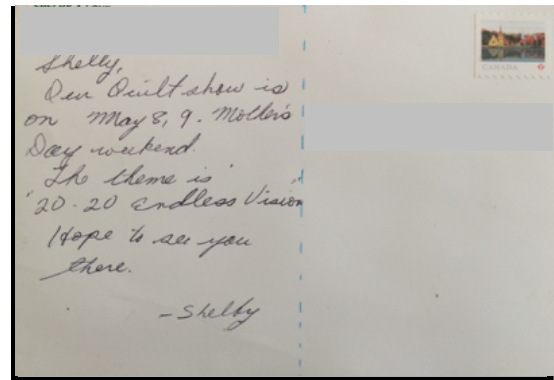 Shelly,
Our Quilt show is
on May 8, 9. Mother's
Day weekend.
The theme is
"20-20 Endless Vision"
Hope to see you
there.
- Shelby
CANADA
P